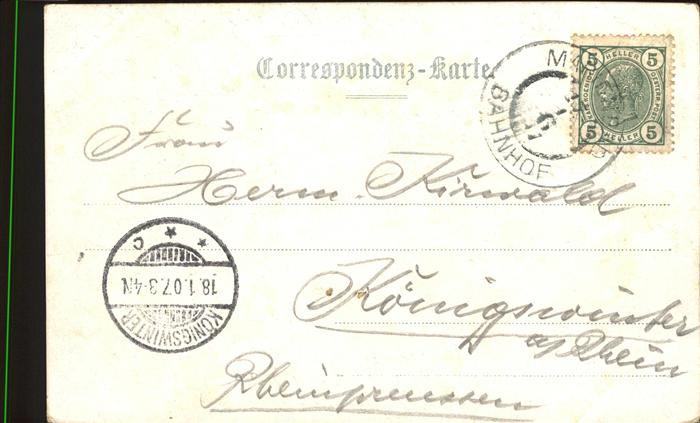 Correspondenz-Karte
5 HELLER 5
5 HELLER 5
BAHNHOF
Frau
Herm. Kirwald
Königswinter
a/ Rhein
Rheinpreussen
KÖNIGSWINTER
18.1.07.3-4N
* * C